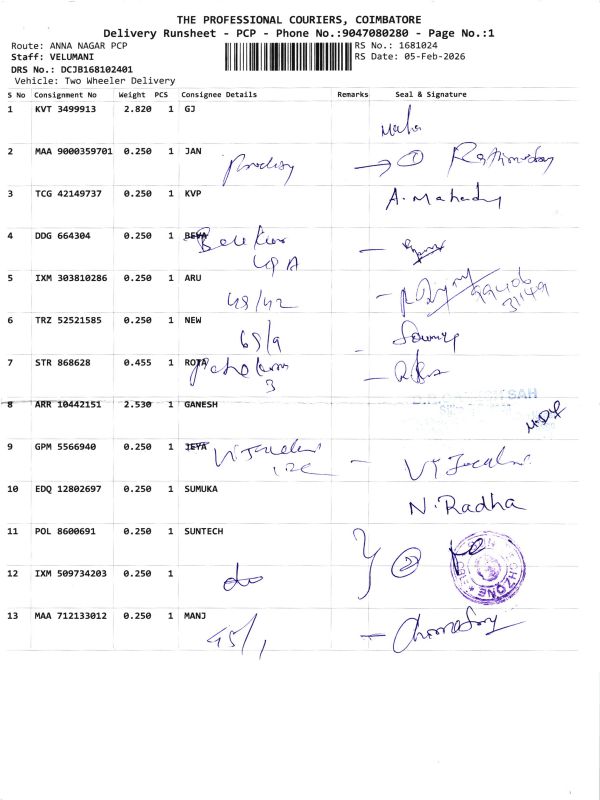 THE PROFESSIONAL COURIERS, COIMBATORE
Delivery Runsheet - PCP - Phone No.:9047080280 - Page No.:1
Route: ANNA NAGAR PCP RS No.: 1681024
Staff: VELUMANI RS Date: 05-Feb-2026
DRS No.: DCJB168102401
Vehicle: Two Wheeler Delivery
S No Consignment No Weight PCS Consignee Details Remarks Seal & Signature
1 KVT 3499913 2.820 1 GJ
2 MAA 9000359701 0.250 1 JAN
1
3 TCG 42149737 0.250 1 KVP
A. Mahadu
4 DDG 664304 0.250 1
48 A
5 IXM 303810286 0.250 1 ARU
48/42
99406
31149
6 TRZ 52521585 0.250 1 NEW
65/9
7 STR 868628 0.455 1 ROJA
3
8 ARR 10442151 2.530 1 GANESH
9 GPM 5566940 0.250 1 JEYA
10 EDQ 12802697 0.250 1 SUMUKA
N. Radha
11 POL 8600691 0.250 1 SUNTECH
2
12 IXM 509734203 0.250 1
do
13 MAA 712133012 0.250 1 MANJ
45/1